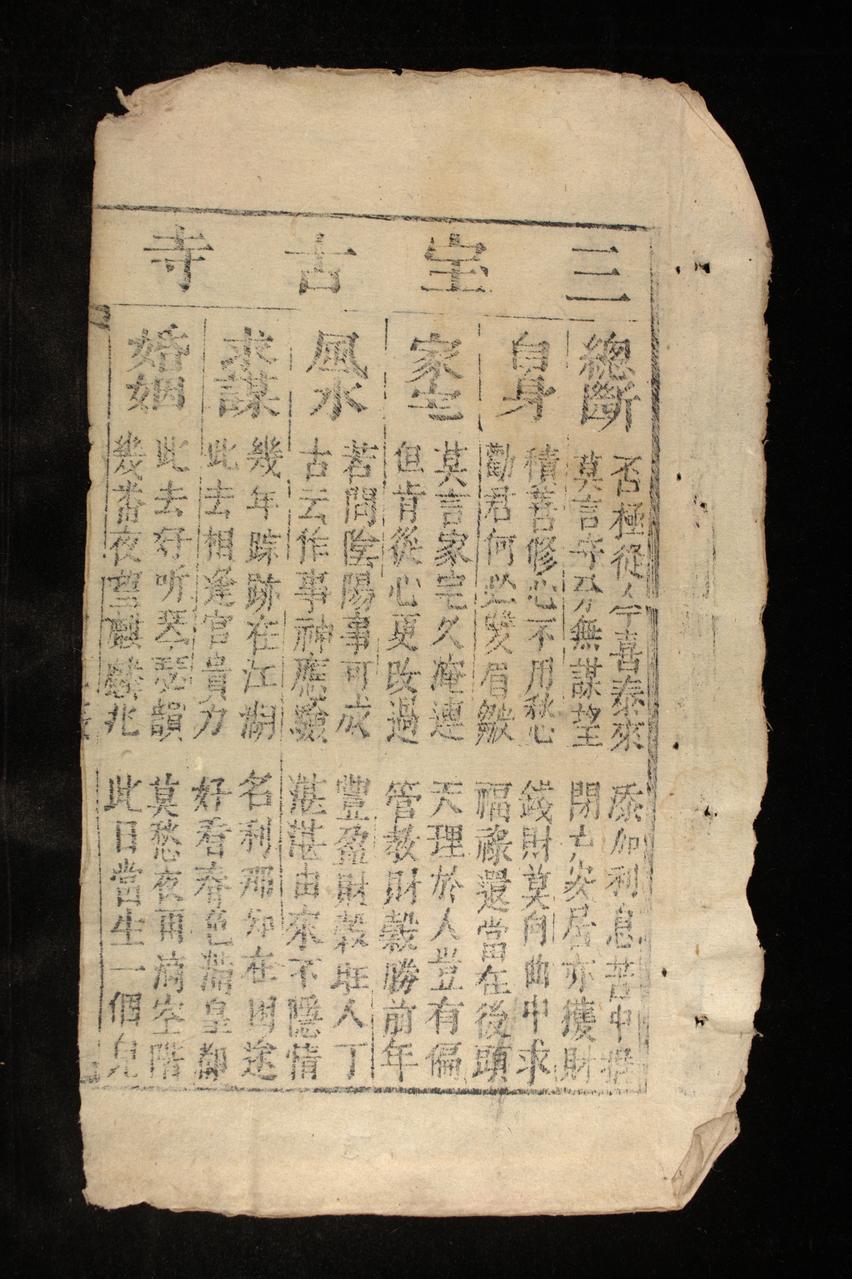 三宝古寺
總斷
否極從今喜泰來 添加利息苦中
莫言守分無謀望 閉户安居亦獲財
自身
積善修心不用愁 錢財莫向曲中求
勸君何必雙眉皺 福祿還當在後頭
家宅
莫言家宅久迍邅 天理於人豈有偏
但肯從心更改過 管教財穀勝前年
風水
若問陰陽事可成 豐盈財穀旺人丁
古云作事神應驗 湛湛由來不隱情
求謀
幾年踪跡在江湖 名利那知在困途
此去相逢官貴力 好看春色滿皇都
婚姻
此去好听琴瑟韻 莫愁夜雨滴空階
幾番夜望麒麟兆 此日當生一個兒